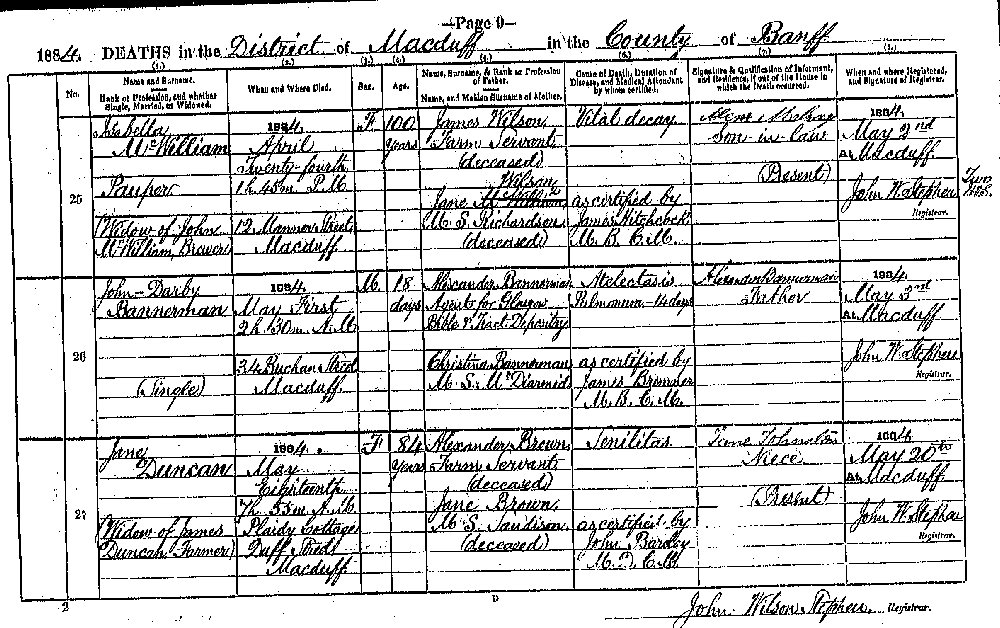 —Page 9—
1884. DEATHS in the District of Macduff in the County of Banff
(1.) (2.) (3.) (4.) (5.) (6.) (7.) (8.)
No.
Name and Surname.
Rank or Profession, and whether Single, Married, or Widowed.
When and Where Died.
Sex.
Age.
Name, Surname, & Rank or Profession of Father.
Name, and Maiden Surname of Mother.
Cause of Death, Duration of Disease, and Medical Attendant by whom certified.
Signature & Qualification of Informant, and Residence, if out of the House in which the Death occurred.
When and where Registered, and Signature of Registrar.
25
Isabella
McWilliam
Pauper
(Widow of John
McWilliam, Brewer)
1884.
April
Twenty-fourth
1h. 45m. P.M.
12 Manner Street
Macduff
F
100
years
James Wilson,
Farm Servant
(deceased)
Wilson
Jane McWilliam
M.S. Richardson
(deceased)
Vital decay
as certified by
James Hitchcock
M.B.C.M.
Son in law
(Present)
1884.
May 2nd
At Macduff
John W. Stephen
Registrar.
26
John-Darby
Bannerman
(Single)
1884.
May First
2h. 30m. A.M.
34 Buchan Street
Macduff
M.
18
days
Alexander Bannerman
Agent for Glasgow
Bible & Tract Depository
Christina Bannerman
M.S. McDiarmid
Atelectasis
Pulmonum - 14 days
as certified by
James
M.B.C.M.
Alexander Bannerman
Father
1884.
May 3rd
At Macduff
John W. Stephen
Registrar.
27
Jane
Duncan
(Widow of James
Duncan Farmer)
1884.
May
Eighteenth
7h. 55m. A.M.
Plaidy Cottage
Duff Street
Macduff
F
84
years
Alexander Brown,
Farm Servant
(deceased)
Jane Brown,
M.S.
(deceased)
Senilitas
as certified by
John
M.B.C.M.
Jane Johnston
Niece
(Present)
1884.
May 20th
At Macduff
John W. Stephen
Registrar.
John Wilson Stephen, Registrar.